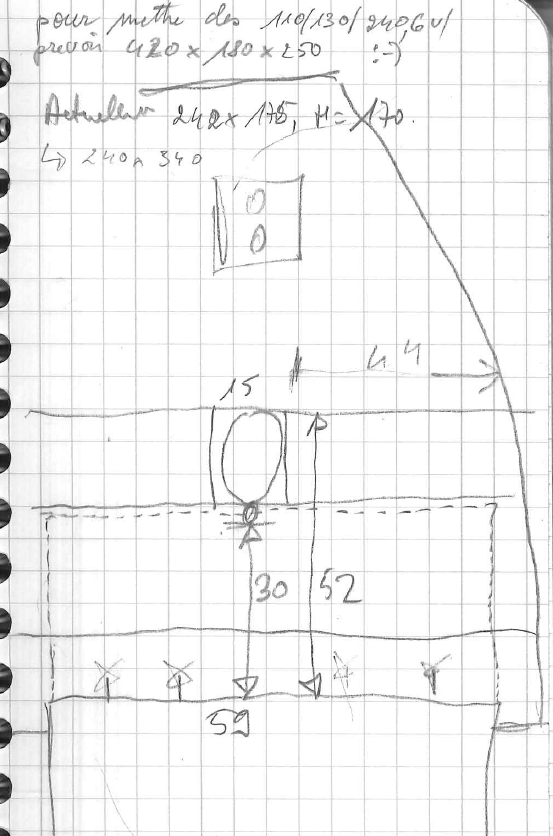 pour mettre des 110/130/240,6u/
prévoir 420 x 180 x 250 :-)
Actuellemt 242 x 175, H = 170.
↳ 240 x 340
0
0
44
15
30
52
59